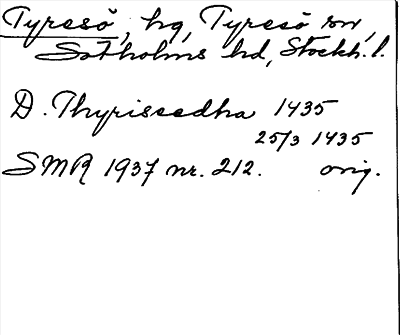 Tyresö, hg, Tyresö sn,
Sotholms hd, Stockh. l.
D. Thyrissedha 1435
25/3 1435
SMR 1937 nr. 212. orig.